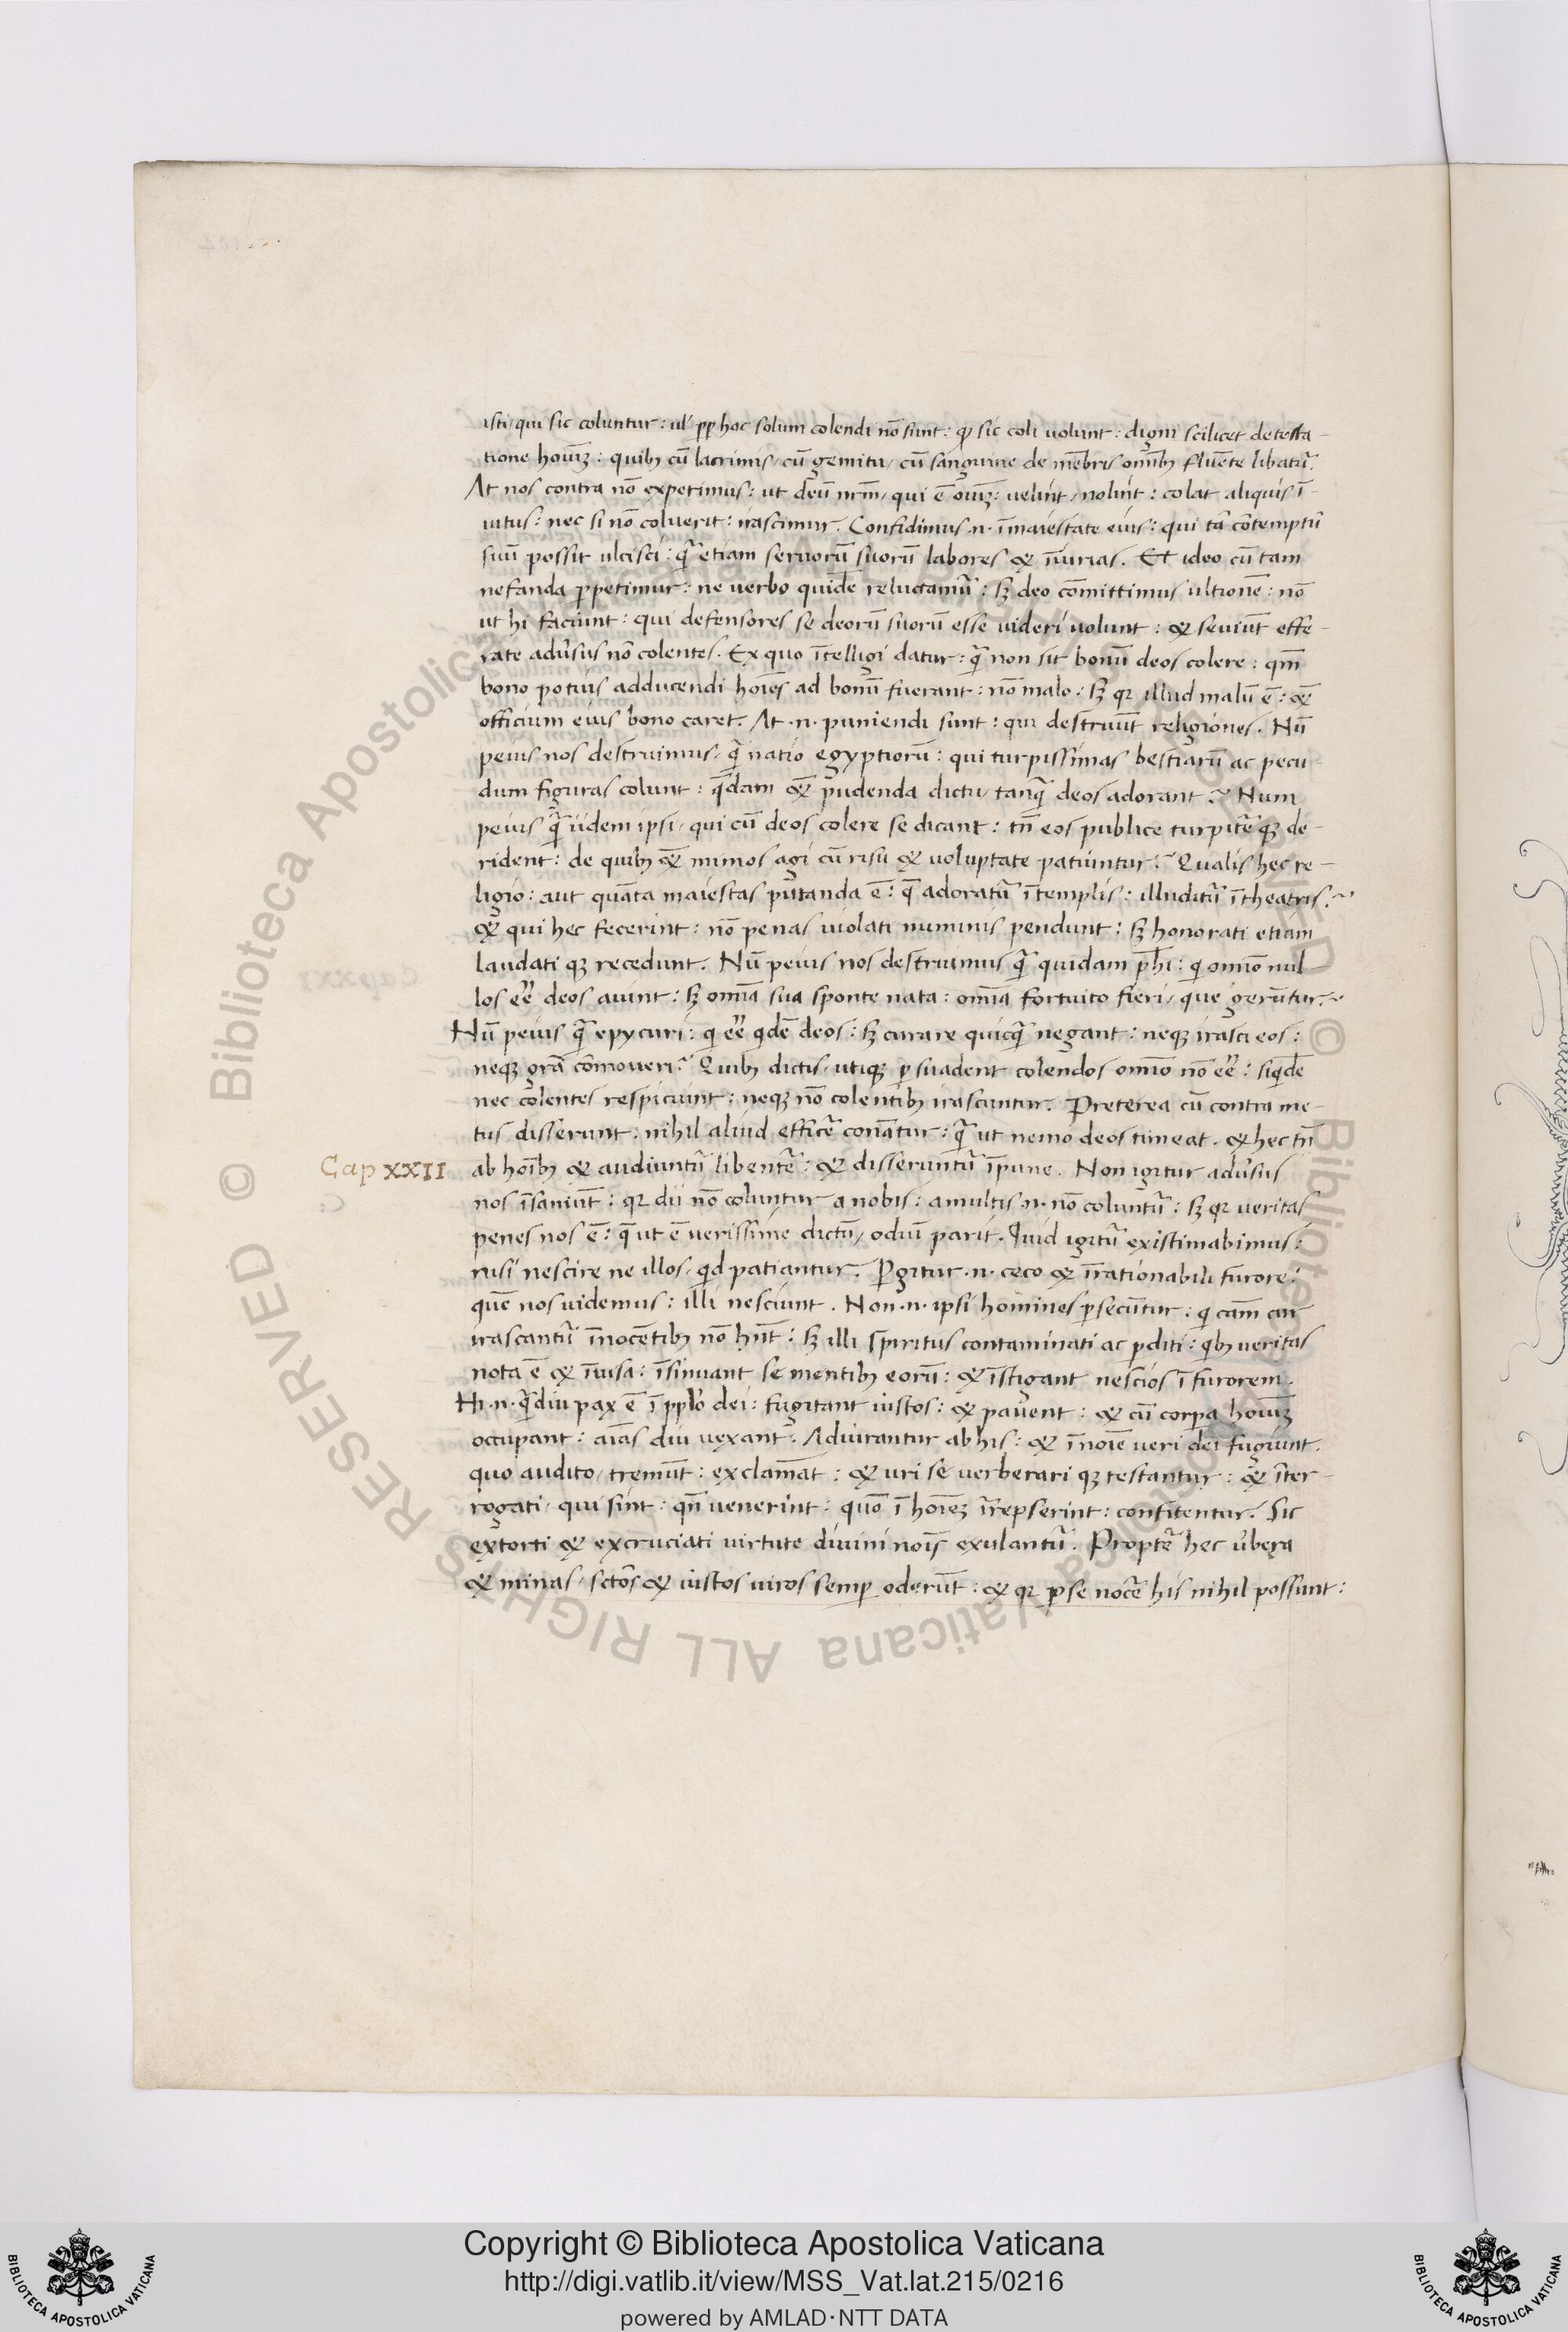 isti/ qui sic coluntur: ul' pp hoc solum colendi nō sunt: ꝙ sic coli uolunt: digni scilicet detesta-
tione hoīuꝫ: quibꝫ cū lacrimis/ cū gemitu/ cū sanguine de mēbris omībꝫ fluēte libatur̃.
At nos contra nō expetimus: ut deū nrm̄/ qui ē oīuꝫ: uelīnt/ nolīnt: colat aliquis ī-
uitus: nec si nō coluerit: irascimur. Confidimus .n. ī maiestate eius: qui tā cōtemptū
suū possit ulcisci: q̄ etiam seruorū suorū labores & īiurias. Et ideo cū tam
nefanda ꝑpetimur: ne uerbo quidē reluctamur̃: sꝫ deo cōmittimus ultionē: nō
ut hi faciunt: qui defensores se deorū suorū esse uideri uolunt: & seuiūt effe-
rate adūsus nō colentes. Ex quo ītelligi datur: q̄ non sit bonū deos colere: qm̄
bono potius adducendi hoīes ad bonū fuerant: nō malo: sꝫ qr illud malū ē: &̄
officium eius bono caret. At .n. puniendi sunt: qui destruūt religiones. Nū
peius nos destruimus/ q̄ natio egyptiorū: qui turpissimas bestiarū ac pecu-
dum figuras colunt: q̄dam &̄ pudenda dictu/ tanq̄ deos adorant? Num
peius q̄ iidem ipsi/ qui cū deos colere se dicant: tn̄ eos publice turpiter̃ qꝫ de-
rident: de quibꝫ &̄ mimos agi cū risu & uoluptate patiuntur? Qualis hec re-
ligio: aut quāta maiestas putanda ē: q̄ adoratur̃ ī templis: illuditur̃ ī theatris?
& qui hec fecerint: nō penas uiolati numinis pendunt: sꝫ honorati etiam
laudati qꝫ recedunt. Nū peius nos destruimus q̄ quidam ph̄i: qi omīo nul-
los eē deos aiunt: sꝫ omīa sua sponte nata: omīa fortuito fieri/ que gerūtur?
Nū peius q̄ epycuri: qi eē qidē deos: sꝫ curare quicq̄ negant: neqꝫ irasci eos:
neqꝫ grā cōmoueri? Quibꝫ dictis/ utiqꝫ ꝑsuadent colendos omīo nō eē: siqidē
nec colentes respiciunt: neqꝫ nō colentibꝫ irascuntur. Preterea cū contra me-
tus disserunt: nihil aliud efficer̃ conātur: q̄ ut nemo deos timeat. & hec tn̄
Cap XXII
ab hoībꝫ & audiuntur̃ libenter̃: & disseruntur̃ īpune. Non igitur adūsus
nos īsaniūt: qr dii nō coluntur a nobis: a multis .n. nō coluntur̃: sꝫ qr ueritas
penes nos ē: q̄ ut ē uerissime dictū/ odiū parit. Quid igitur̃ existimabimus:
nisi nescire ne illos/ qid patiantur. Pgitur .n. ceco & irrationabili furore:
quē nos uidemus: illi nesciunt. Non .n. ipsi homines ꝑsecūtur: qi cam̄ cur
irascantur̃ īnocētibꝫ nō hn̄t: sꝫ illi spiritus contaminati ac ꝑditi: qibꝫ ueritas
nota ē & īuisa: īsinuant se mentibꝫ eorū: & īstigant nescios ī furorem.
Hi .n. q̄diu pax ē ī ppl'o dei: fugitant iustos: & pauent: & cū corpa hoīuꝫ
occupant: aīas diu uexant. Adiurantur ab his: & ī noīe ueri dei fugiunt.
quo audito/ tremūt: exclamāt: & uri se uerberari qꝫ testantur: & īter-
rogati/ qui sint: qn̄ uenerint: quō ī hoīeꝫ irrepserint: confitentur. Sic
extorti & excruciati uirtute diuini noīs exulantur̃. Propter̃ hec ūbera
& minas/ sctōs & iustos uiros semꝑ oderūt: & qr ꝑ se nocer̃ his nihil possunt:
Copyright © Biblioteca Apostolica Vaticana
http://digi.vatlib.it/view/MSS_Vat.lat.215/0216
powered by AMLAD·NTT DATA
BIBLIOTECA APOSTOLICA VATICANA
BIBLIOTECA APOSTOLICA VATICANA
© Biblioteca Apostolica Vaticana ALL RIGHTS RESERVED